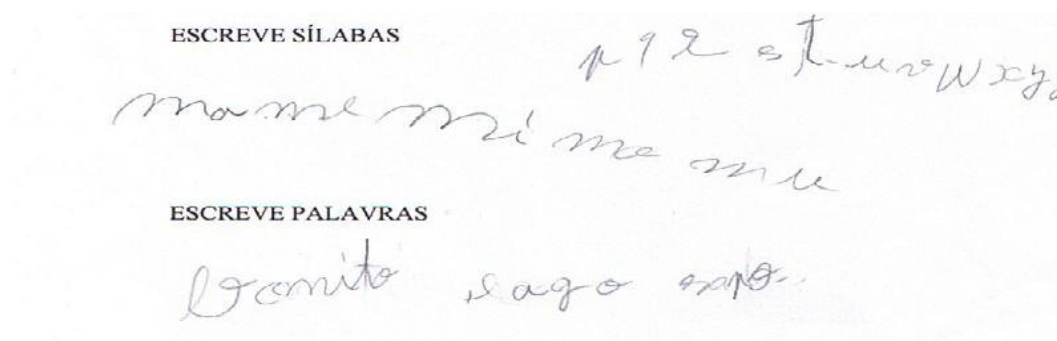 ESCREVE SÍLABAS
p q r s t u v w x y z
ma me mi mo mu
ESCREVE PALAVRAS
bonito lago